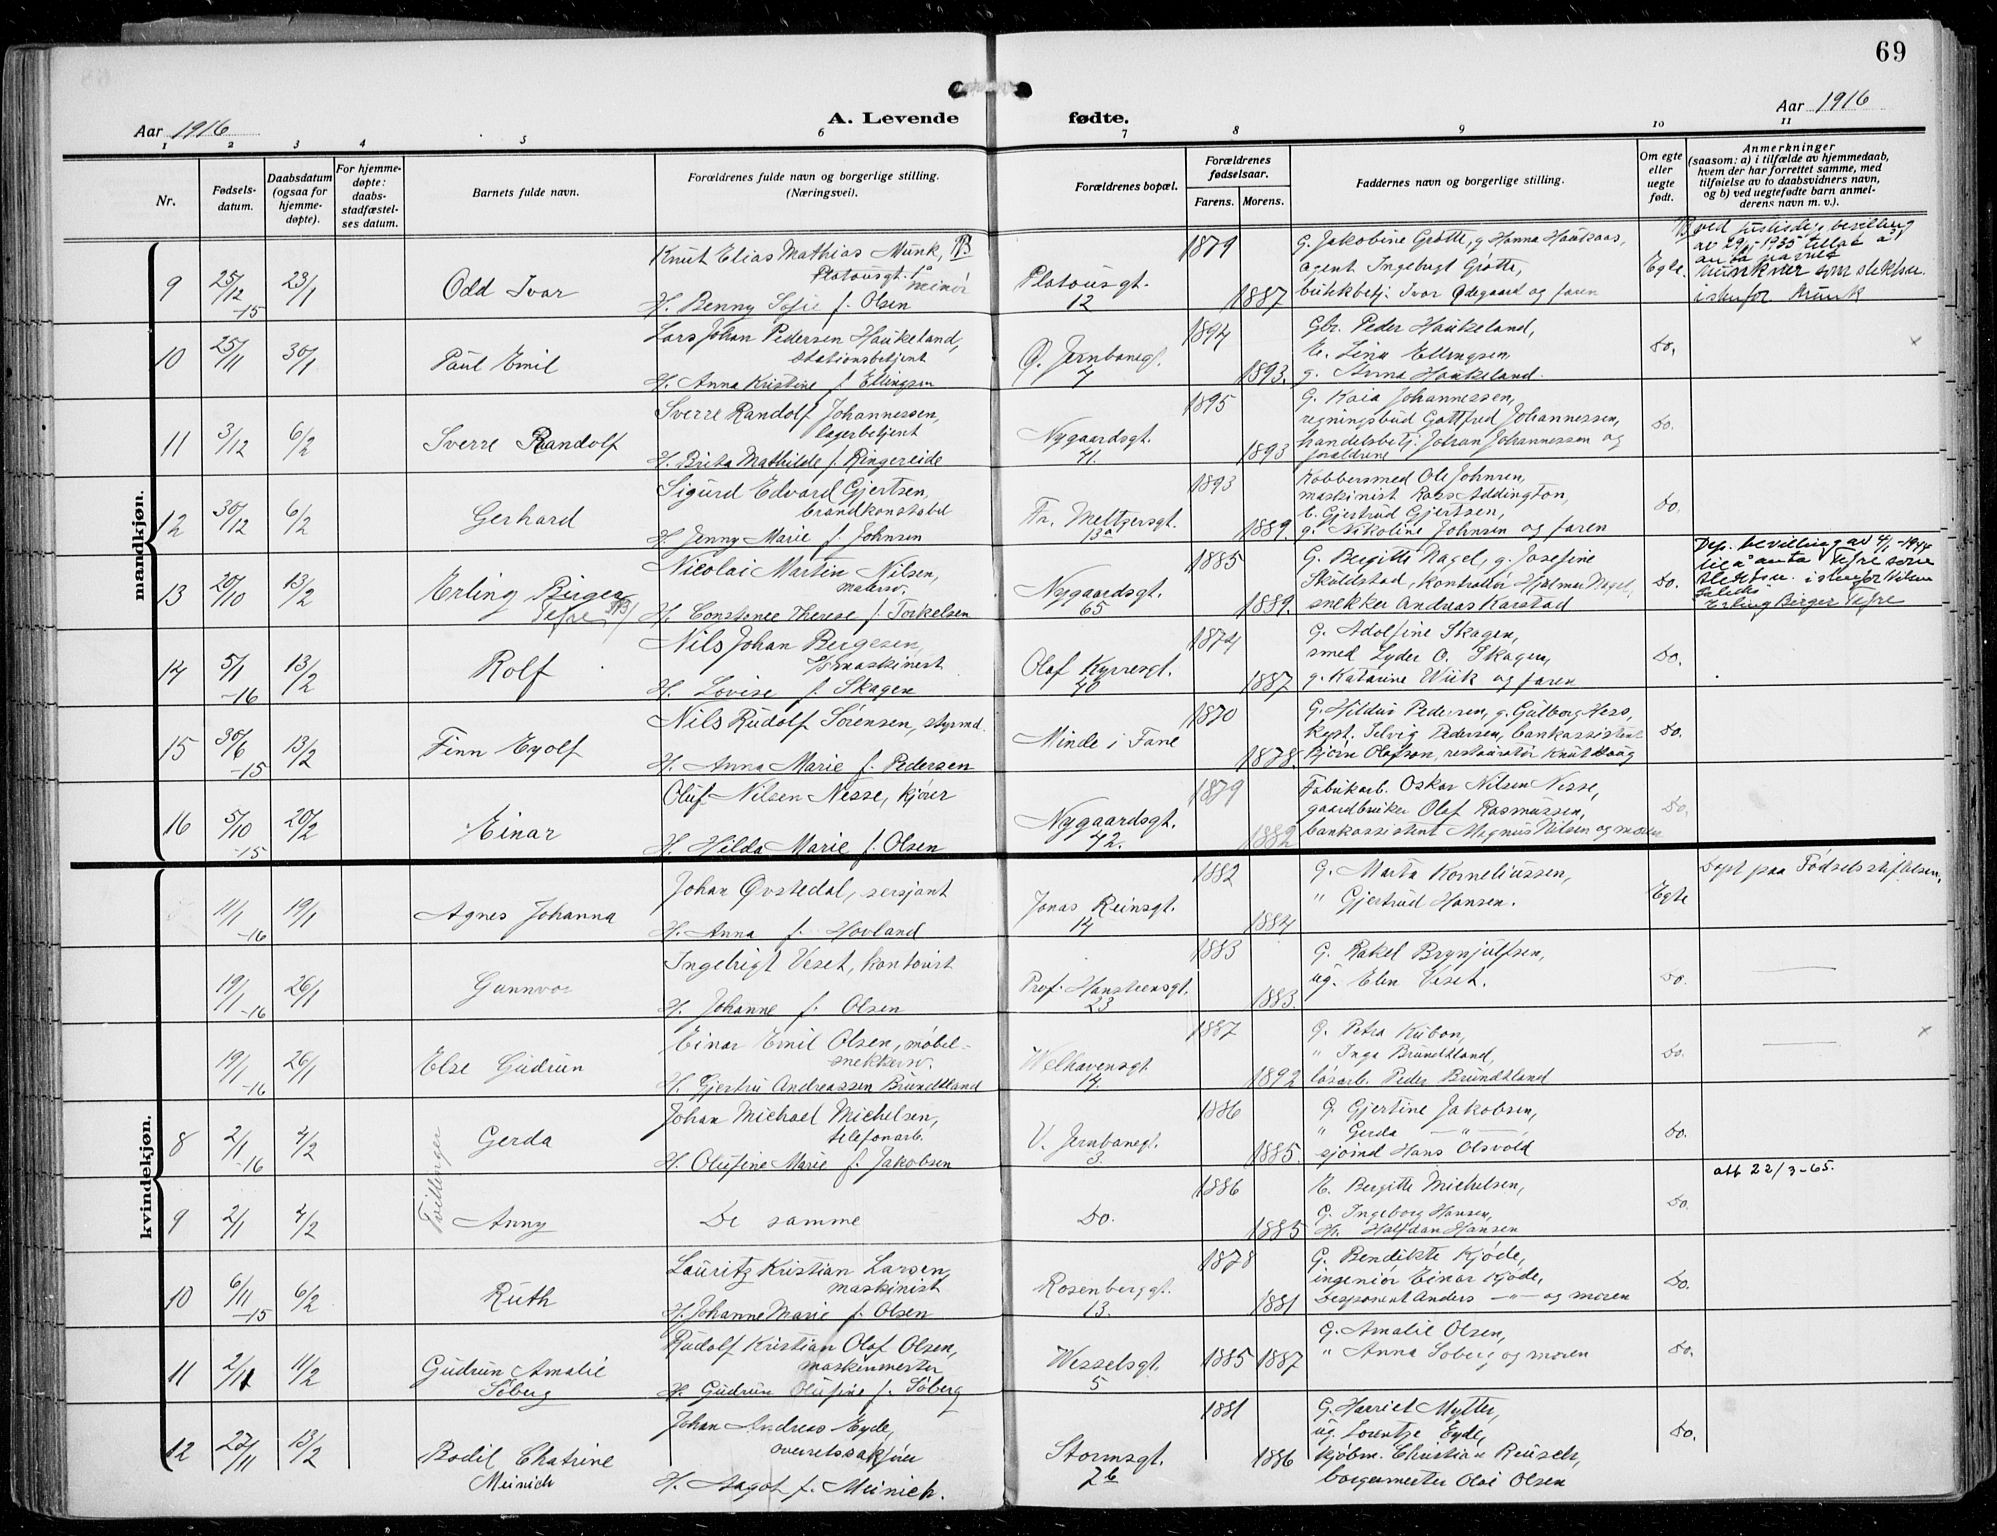 69
Aar 1916
A. Levende fødte.
Aar 1916
1 2 3 4 5 6 7 8 9 10 11
Nr.
Fødsels-
datum.
Daabsdatum
(ogsaa for
hjemme-
døpte).
For hjemme-
døpte:
daabs-
stadfæstel-
ses datum.
Barnets fulde navn.
Forældrenes fulde navn og borgerlige stilling.
(Næringsvei).
Forældrenes bopæl.
Forældrenes
fødselsaar.
Farens. Morens.
Faddernes navn og borgerlige stilling.
Om egte
eller
uegte
født.
Anmerkninger
(saasom: a) i tilfælde av hjemmedaab,
hvem der har forrettet samme, med
tilføielse av to daabsvidners navn,
og b) ved uegtefødte barn anmel-
derens navn m. v.).
mandkjøn.
9 25/12 -15 23/1 Odd Ivar
Knut Elias Mathias Munk,
Platousgt. 1a minør
H. Benny Sofie f. Olsen
Platousgt. 12
1879 1887
G. Jakobine Grøtte, g Hanna Haukaas,
agent Ingebrigt Grøtte,
butikbetj. Ivar Ødegaard og faren
Egte.
ved justisdep. bevilling
av 29/5 1935 tillat å
anta navnet
Munkner som slektsn.
istenfor Munk
10 25/11 30/1 Paul Emil
Lars Johan Pedersen Haukeland,
stationsbetjent
H. Anna Kristine f. Ellingsen
Ø. Jernbanegt. 7
1894 1893.
Gbr. Peder Haukeland,
E. Lina Ellingsen
g. Anna Haukeland.
Do.
11 3/12 6/2 Sverre Randolf
Sverre Randolf Johannessen,
lagerbetjent
H. Brita Mathilde f. Ringereide
Nygaardsgt. 41.
1895 1893
G. Kaia Johannessen,
regningsbud Gottfred Johannessen,
handelsbetj. Johan Johannessen og
forældrene
Do.
12 30/12 6/2 Gerhard
Sigurd Edvard Gjertsen,
brandkonstabel
H. Jenny Marie f. Johnsen
Fr. Meltzersgt. 13a
1893 1889.
Kobbersmed Ole Johnsen,
maskinist Rasº Addington,
E. Gjertrud Gjertsen,
g. Nikoline Johnsen og faren
Do.
13 20/10 13/2 Erling Birger
Tefre NB!
Nicolai Martin Nilsen,
malersv.
H. Constance Therese f. Torkelsen
Nygaardsgt. 65
1885 1889.
G. Bergitte Nagel, g. Josefine
Skuldstad, kontrollør Hjalmar Nagel,
snekker Andreas Karstad
Do.
Dep. bevilling av 4/1-1944
til å anta Tefre som
slektsn. istenfor Nilsen
Erling Birger Tefre
14 5/1 -16 13/2 Rolf
Nils Johan Bergesen,
maskinist
H. Lovise f. Skagen
Olaf Kyrresgt. 40
1874 1887
G. Adolfine Skagen,
smed Lyder O. Skagen,
g. Katarine Wiik og faren
Do.
15 30/6 -15 13/2 Finn Eyolf
Nils Rudolf Sørensen, styrmd.
H. Anna Marie f. Pedersen
Minde i Fane
1870 1878.
G. Hildur Pedersen, g. Gulborg Hess,
kapt. Selvig Pedersen, bankassistent
Bjørn Olafson, restauratør Knut Haug
Do.
16 5/10 -15 20/2 Einar
Oluf Nilsen Nesse, kjører
H. Hilda Marie f. Olsen
Nygaardsgt. 42.
1879 1882
Fabrikarb. Oskar Nilsen Nesse,
gaardbruker Olaf Rasmussen,
bankassistent Magnus Nilsen og moren
Do.
kvindekjøn.
11/1 -16 19/1 Agnes Johanna
Johan Øvstedal, sersjant
H. Anna f. Hovland
Jonas Reinsgt. 14
1882 1884
G. Marta Korneliussen,
" Gjertrud Hansen.
Egte
Døpt paa Fødselsstiftelsen.
19/1 -16 26/1 Gunnvor
Ingebrigt Veset, kontorist
H. Johanne f. Olsen
Prof. Hansteensgt. 23
1883 1883.
G. Rakel Brynjulfsen,
ug. Elen Veset.
Do.
19/1 -16 26/1 Else Gudrun
Einar Emil Olsen, møbel-
snekkersv.
H. Gjertru Andreassen Brundtland
Welhavensgt. 14.
1887 1892
G. Petra Kubon,
" Inga Brundtland,
løsarb. Peder Brundtland
Do.
Tvillinger
8 2/1 -16 4/2 Gerda
Johan Michael Michelsen,
telefonarb.
H. Olufine Marie f. Jakobsen
V. Jernbanegt. 3.
1886 1885.
G. Gjertine Jakobsen,
" Gerda — " —
sjømd Hans Olsvold
Do.
9 2/1 4/2 Anny
De samme
Do.
1886 1885
E. Bergitte Michelsen,
G. Ingeborg Hansen,
H. Halfdan Hansen
Do.
att 22/3-65.
10 6/11 -15 6/2 Ruth
Lauritz Kristian Larsen,
maskinist
H. Johanne Marie f. Olsen
Rosenberggt. 13.
1878 1881
G. Bendikte Kjøde,
ingeniør Einar Kjøde,
Disponent Anders —"— og moren
Do.
11 2/11 11/2 Gudrun Amalie
Søberg
Rudolf Kristian Olaf Olsen,
maskinmester
H. Gudrun Olufine f. Søberg
Wesselsgt. 5
1885 1887
G. Amalie Olsen,
" Anna Søberg og moren
Do.
12 27/11 13/2 Bodil Chatrine
Meinich
Johan Andreas Eyde,
overretssakfører
H. Aagot f. Meinich.
Stormsgt. 2b
1881 1886
G. Harriet Mytter,
ug. Lorentze Eyde,
kjøbm. Christian Reusch,
borgermester Olai Olsen
Do.